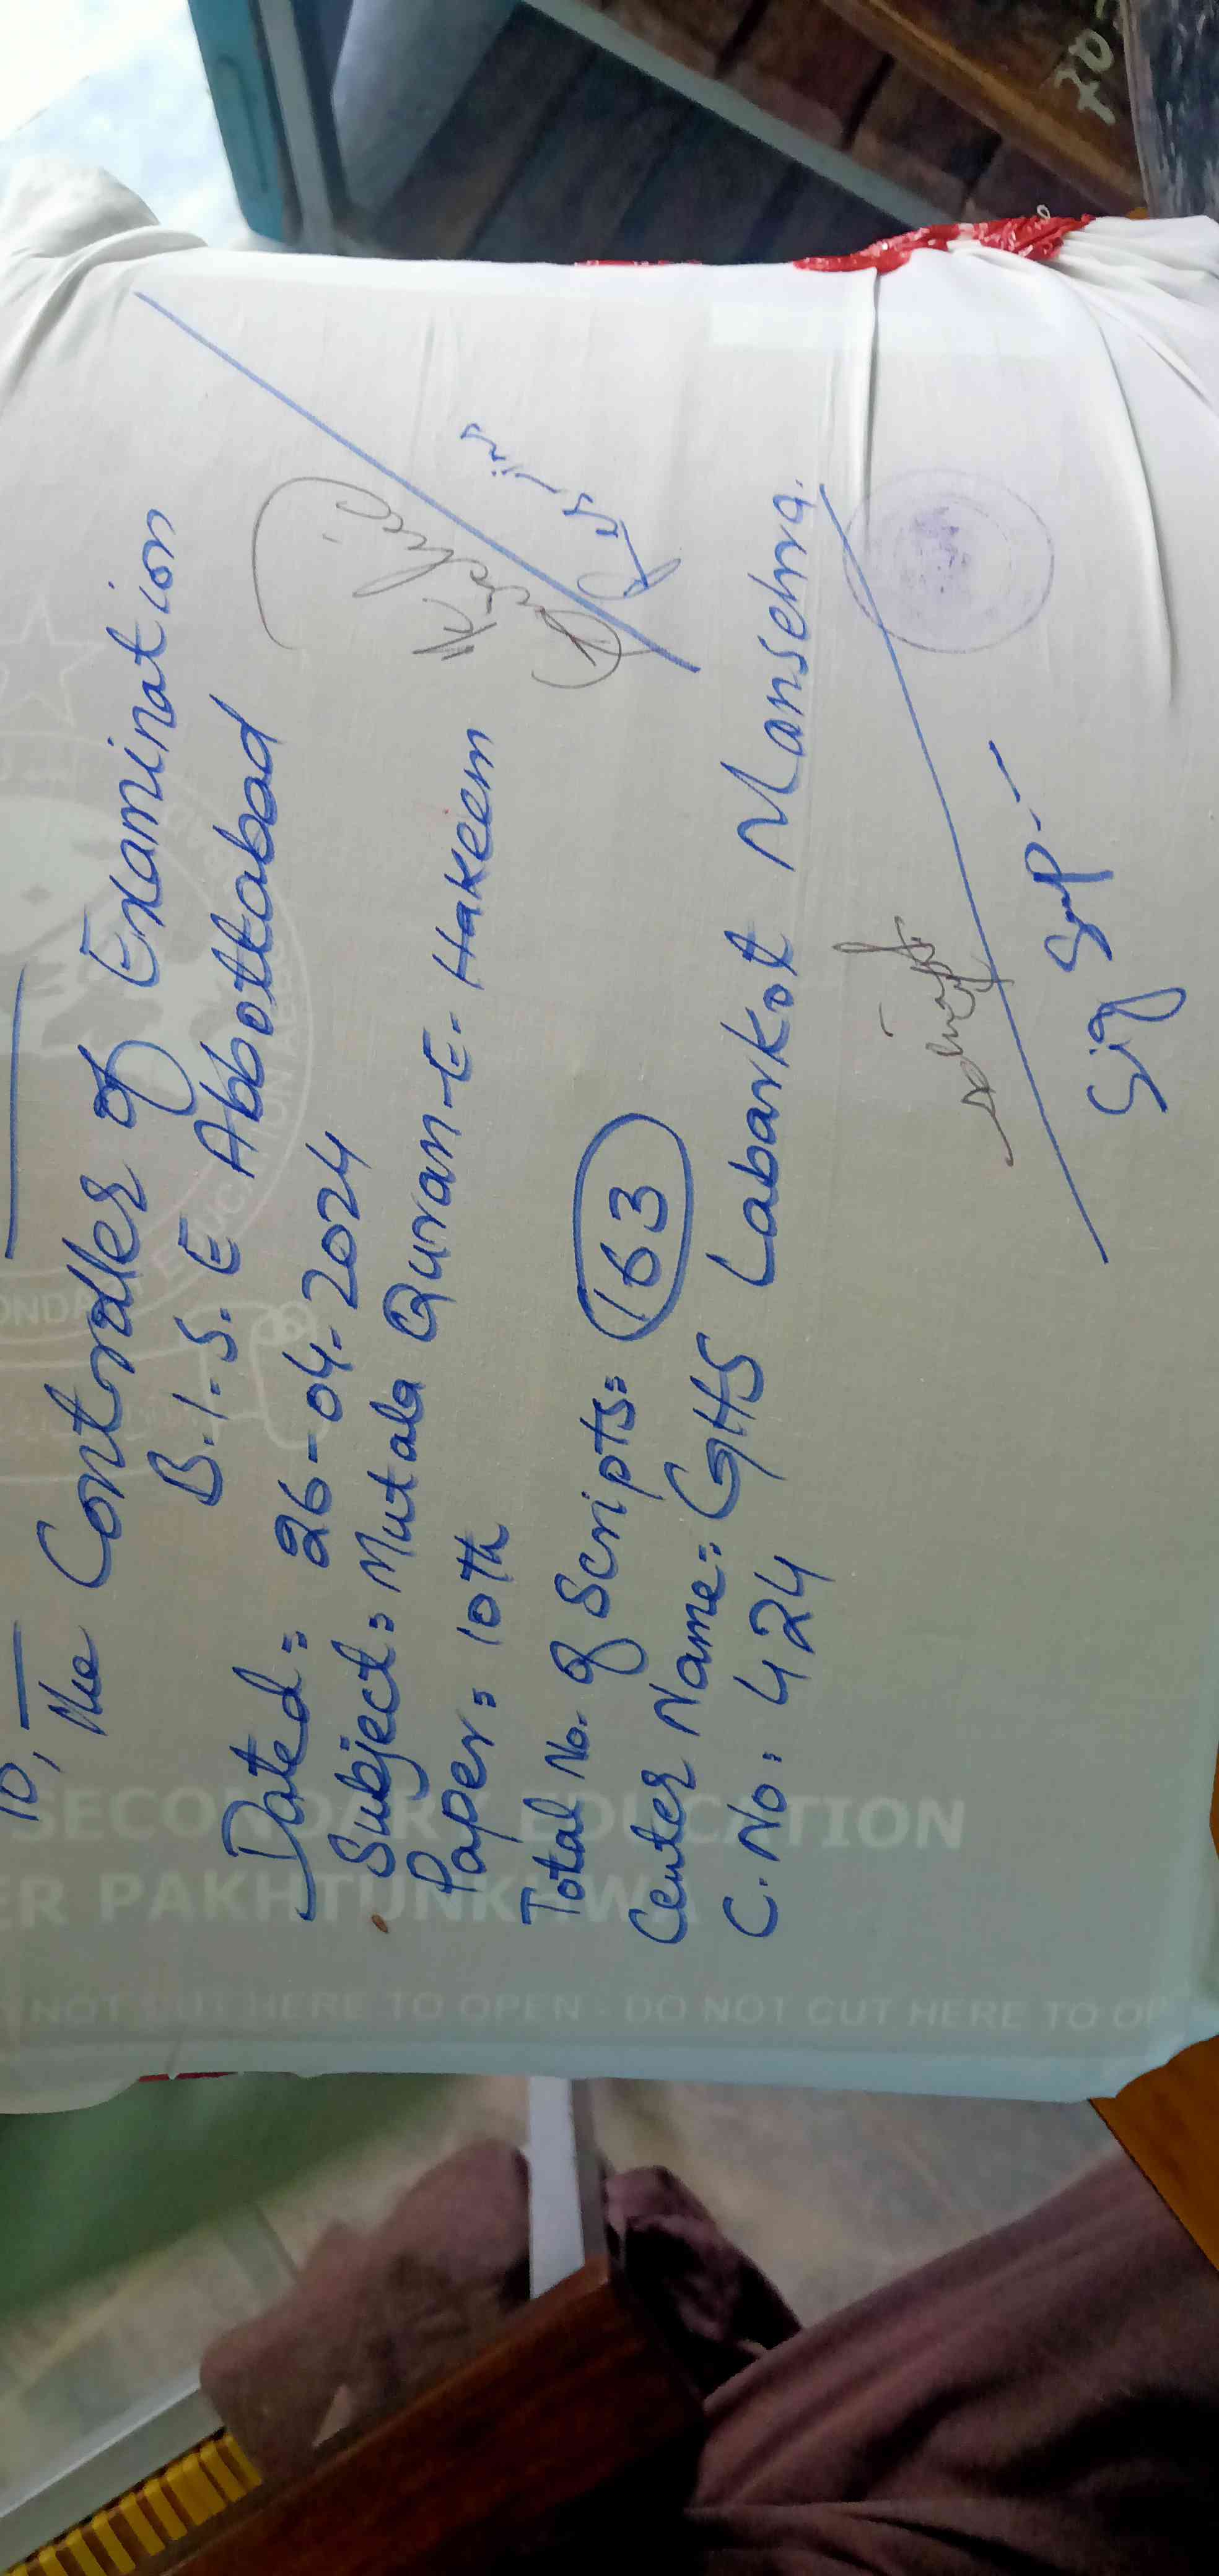 To,
The Controller of Examination
B.I.S.E Abbottabad
Dated= 26-04-2024
Subject= Mutala Quran-E-Hakeem
Paper= 10th
Total No. of Scripts= 163
Center Name= GHS Labarkot Mansehra.
C.No: 424
Sig Sup--
SECONDARY EDUCATION
ER PAKHTUNKHWA
NOT CUT HERE TO OPEN - DO NOT CUT HERE TO OP